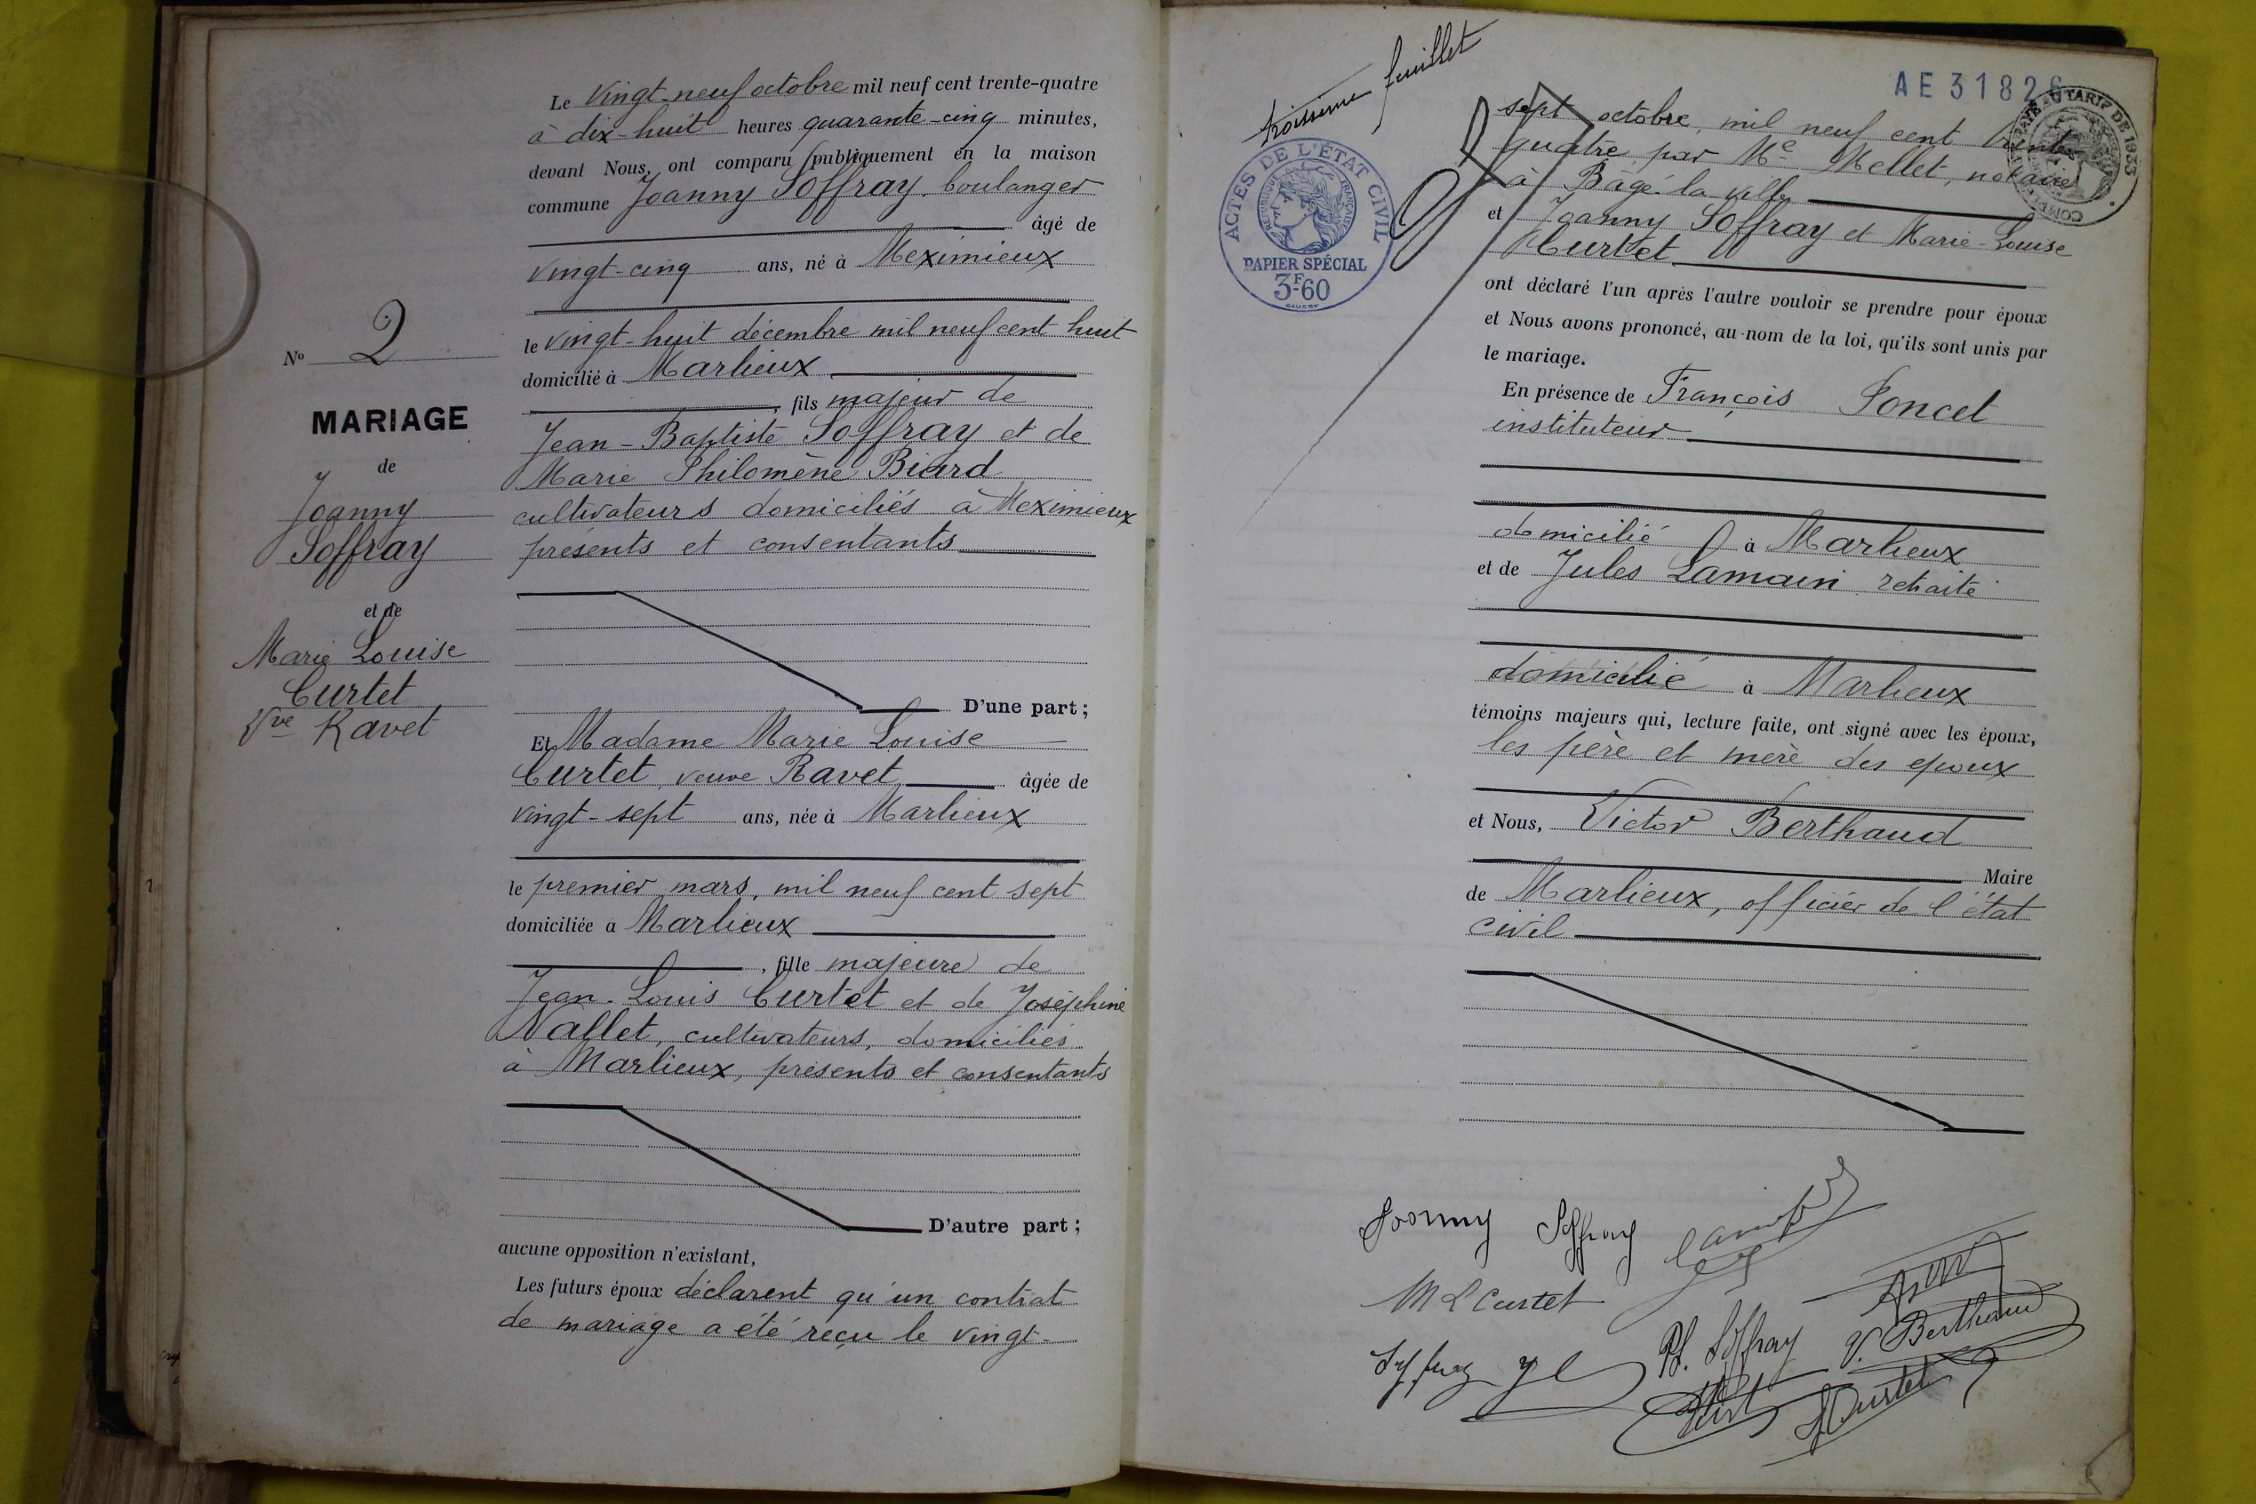 Le vingt-neuf octobre mil neuf cent trente-quatre
à dix-huit heures quarante-cinq minutes,
devant Nous, ont comparu publiquement en la maison
commune Joanny Soffray, boulanger
âgé de
vingt-cinq ans, né à Meximieux
le vingt-huit décembre mil neuf cent huit
domicilié à Marlieux
, fils majeur de
Jean-Baptiste Soffray et de
Marie Philomène Biard
cultivateurs domiciliés à Meximieux
présents et consentants
D'une part;
No 2
MARIAGE
de
Joanny
Soffray
et de
Marie Louise
Curtet
Vve Ravet
Et Madame Marie Louise
Curtet, veuve Ravet âgée de
vingt-sept ans, née à Marlieux
le premier mars, mil neuf cent sept
domiciliée à Marlieux
, fille majeure de
Jean-Louis Curtet et de Joséphine
Nallet, cultivateurs, domiciliés
à Marlieux, présents et consentants
D'autre part;
aucune opposition n'existant,
Les futurs époux déclarent qu'un contrat
de mariage a été reçu le vingt-
troisième feuillet
AE 31826
ACTES DE L'ÉTAT CIVIL
RÉPUBLIQUE FRANÇAISE
PAPIER SPÉCIAL
3F-60
sept octobre, mil neuf cent trente
quatre, par Me Mellet, notaire
à Bâgé-la-ville
et Joanny Soffray et Marie-Louise
Curtet
ont déclaré l'un après l'autre vouloir se prendre pour époux
et Nous avons prononcé, au nom de la loi, qu'ils sont unis par
le mariage.
En présence de François Poncet
instituteur
domicilié à Marlieux
et de Jules Lamain retraité
domicilié à Marlieux
témoins majeurs qui, lecture faite, ont signé avec les époux,
les père et mère des époux
et Nous, Victor Berthaud
Maire
de Marlieux, officier de l'état
civil
Joanny Soffray
M L Curtet
Ph. Soffray
V. Berthaud
Soffray
Curtet